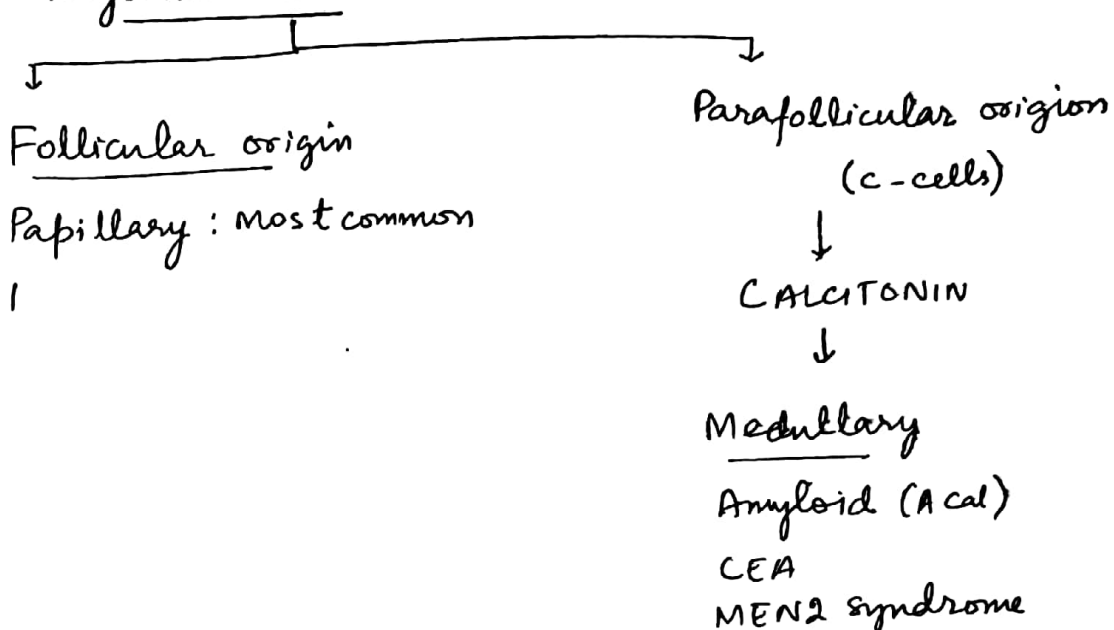 Follicular origin
Papillary : Most common
Parafollicular origion
(c-cells)
CALCITONIN
Medullary
Amyloid (A cal)
CEA
MEN2 syndrome